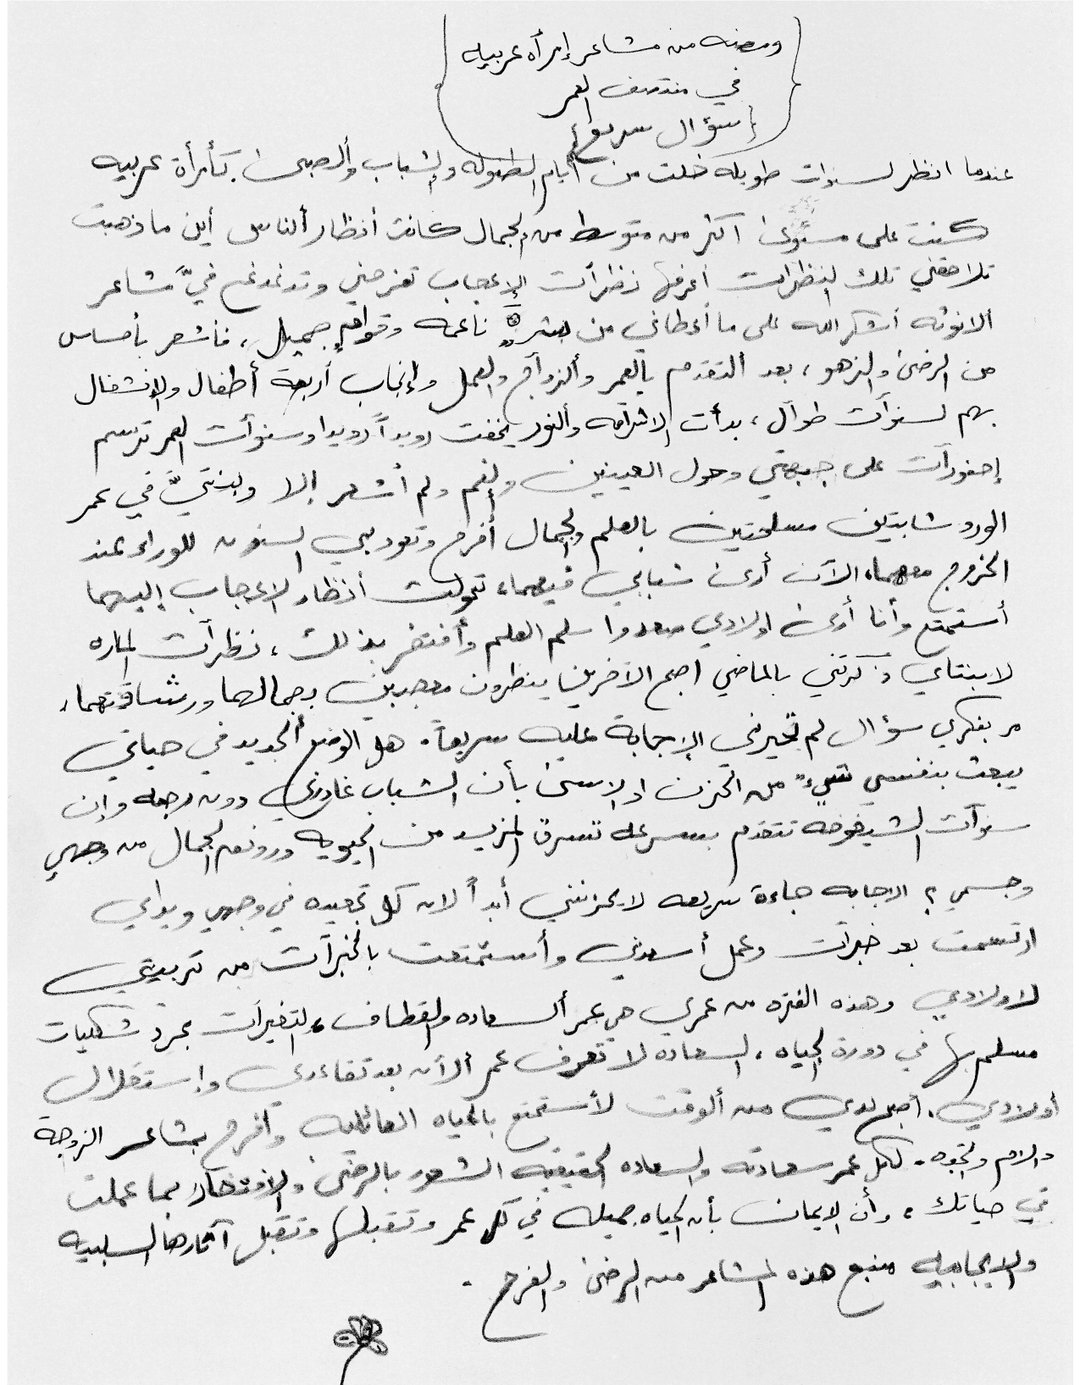 ومضه من مشاعر إمرأه عربيه
في منتصف العمر
{سؤال سريع}
عندما انظر لسنوات طويله خلت من أيام الطفوله والشباب والصبى، كأمرأة عربيه
كنت على مستوى اكثر من متوسط من الجمال كانت أنظار الناس أين ما ذهبت
تلاحقني تلك النظرات أعرفها نظرات الإعجاب تفرحني وتدغدغ فيَّ مشاعر
الانوثه أشكر الله على ما أعطاني من بشرة ناعمه وقوام جميل، فأشعر بأحساس
من الرضى والزهو، بعد التقدم بالعمر والزواج والعمل وإنجاب أربعة أطفال والإنشغال
بهم لسنوات طوال، بدأت الاشراقه والنور يخفت رويداً رويدا وسنوات العمر ترسم
إخفورات على جبهتي وحول العينين والفم ولم أشعر إلا وبنتيَّ في عمر
الورد شابتين مسلحتين بالعلم والجمال أفرح وتعود بي السنون للوراء عند
الخروج معهما، الآن أرى شبابي فيهما، تحولت أنظار الاعجاب إليهما
أستمتع وأنا أرى اولادي صعدوا سلم العلم وأفتخر بذلك، نظرات الماره
لابنتاي ذكرتني بالماضي اصبح الآخرين ينظرون معجبين بجمالهما ورشاقتهما،
مر بفكري سؤال لم تحيرني الإجابة عليه سريعاً. هل الوضع الجديد في حياتي
يبعث بنفسي شيء من الحزن او الاسى بأن الشباب غادرني دون رجعه وإن
سنوات الشيخوخه تتقدم بسرعه تسرق المزيد من الحيويه ورونق الجمال من وجهي
وجسمي ؟ الاجابه جاءة سريعه لا يحزنني أبداً لان كل تجعيده في وجهي ويداي
ارتسمت بعد خبرات وعمل أسعدني وأستمتعت بالخبرات من تربيتي
لاولادي وهذه الفتره من عمري هي عمر السعاده والقطاف، والتغيرات مجرد شكليات
مسلم بها في دورة الحياه، السعاده لا تعرف عمر الآن بعد تقاعدي وإستقلال
أولادي، أصبح لدي من الوقت لأستمتع بالحياه العائليه وأفرح بمشاعر الزوجة
والام والجده. لكل عمر سعادته والسعاده الحقيقيه الشعور بالرضى والافتخار بما عملت
في حياتك، وأن الإيمان بأن الحياه جميله في كل عمر وتقبلها وتقبل آثارها السلبيه
والايجابيه منبع هذه المشاعر من الرضى والفرح.